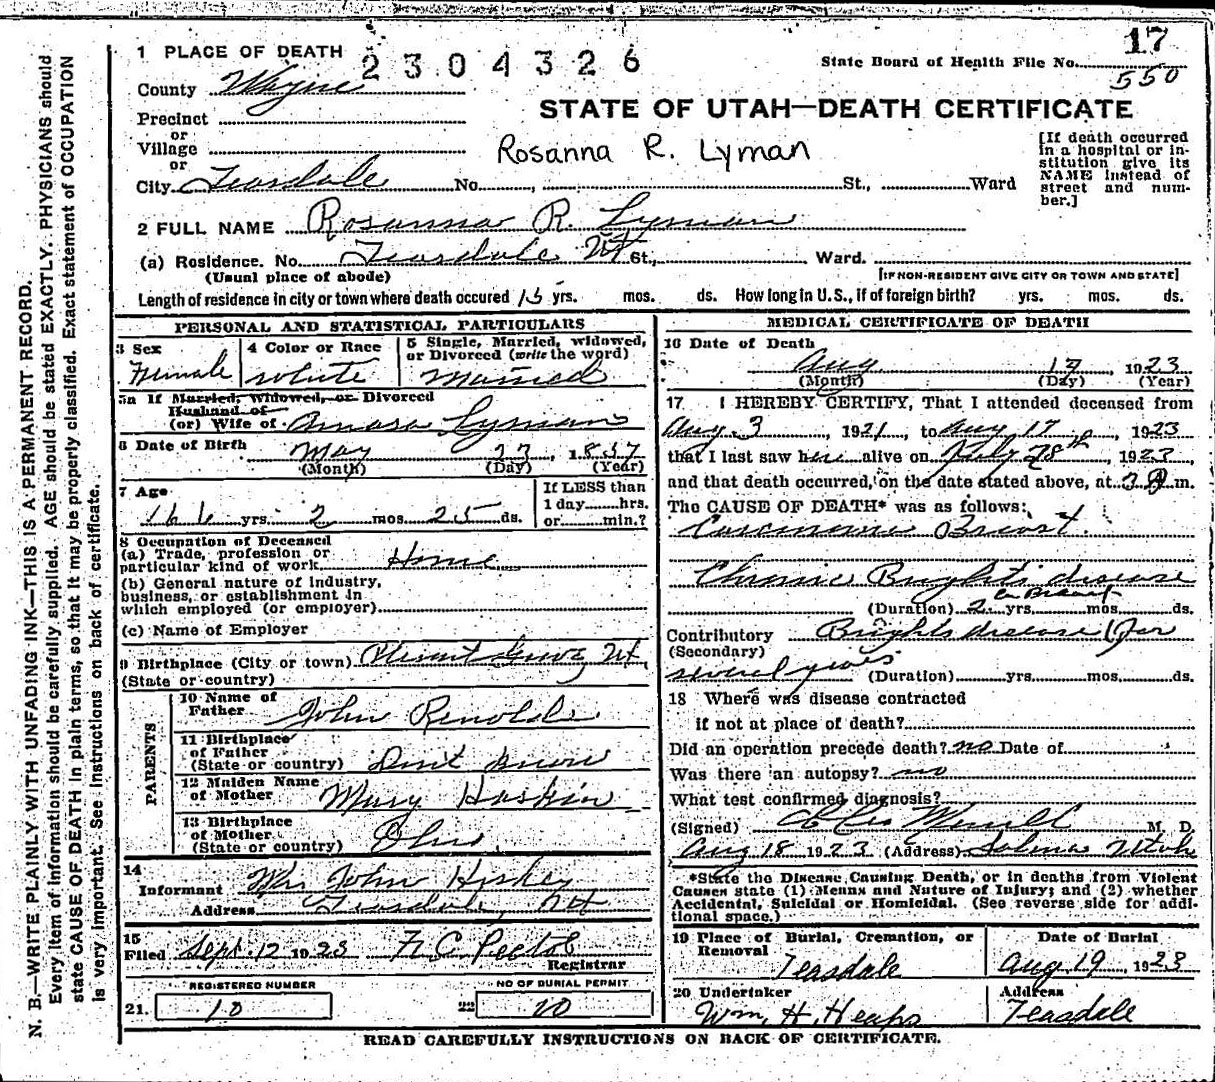 17
State Board of Health File No. 550
2304326
1 PLACE OF DEATH
County Wayne
STATE OF UTAH—DEATH CERTIFICATE
Precinct
or
Village
or
Rosanna R. Lyman
[If death occurred in a hospital or in-
stitution give its
NAME instead of
street and num-
ber.]
City Teasdale No. , St., Ward
2 FULL NAME Rosanna R. Lyman
(a) Residence. No. Teasdale Ut St., Ward.
(Usual place of abode) [IF NON-RESIDENT GIVE CITY OR TOWN AND STATE]
Length of residence in city or town where death occured 15 yrs. mos. ds. How long in U.S., if of foreign birth? yrs. mos. ds.
PERSONAL AND STATISTICAL PARTICULARS
3 Sex
Female
4 Color or Race
white
5 Single, Married, widowed,
or Divorced (write the word)
Married
5a If Married, Widowed, or Divorced
Husband of
(or) Wife of Amasa Lyman
6 Date of Birth May 23, 1857
(Month) (Day) (Year)
7 Age
66 yrs. 2 mos. 25 ds.
If LESS than
1 day hrs.
or min.?
8 Occupation of Deceased
(a) Trade, profession or
particular kind of work Home
(b) General nature of Industry,
business, or establishment in
which employed (or employer)
(c) Name of Employer
9 Birthplace (City or town) Plesent Grove, Ut.
(State or country)
PARENTS
10 Name of
Father John Renolds
11 Birthplace
of Father
(State or country) Dont know
12 Maiden Name
of Mother Mary Haskin
13 Birthplace
of Mother
(State or country) Ohio.
14
Informant Mrs John Hiskey
Address Teasdale, Ut
15
Filed Sept. 12 1923 F. C. Pectol
Registrar
REGISTERED NUMBER
21. 10
NO OF BURIAL PERMIT
22 20
MEDICAL CERTIFICATE OF DEATH
16 Date of Death
Aug 17, 1923
(Month) (Day) (Year)
17 I HEREBY CERTIFY, That I attended deceased from
Aug. 3, 1921, to Aug 17, 1923
that I last saw her alive on July 28th, 1923,
and that death occurred, on the date stated above, at 3 A m.
The CAUSE OF DEATH* was as follows:
Carcinoma Breast.
Chronic Brights disease
Ca Breast
(Duration) 2 yrs. mos. ds.
Contributory Brights disease (for
(Secondary)
several years (Duration) yrs. mos. ds.
18 Where was disease contracted
if not at place of death?
Did an operation precede death? no Date of
Was there an autopsy? no
What test confirmed diagnosis?
(Signed) M. D.
Aug 18 1923 (Address) Salina Utah
*State the Disease Causing Death, or in deaths from Violent
Causes state (1) Means and Nature of Injury; and (2) whether
Accidental, Suicidal or Homicidal. (See reverse side for addi-
tional space.)
19 Place of Burial, Cremation, or
Removal
Teasdale
Date of Burial
Aug 19, 1923
20 Undertaker
Wm. H. Heaps
Address
Teasdale
READ CAREFULLY INSTRUCTIONS ON BACK OF CERTIFICATE.
N. B.—WRITE PLAINLY WITH UNFADING INK—THIS IS A PERMANENT RECORD.
Every item of information should be carefully supplied. AGE should be stated EXACTLY. PHYSICIANS should
state CAUSE OF DEATH in plain terms, so that it may be properly classified. Exact statement of OCCUPATION
is very important. See instructions on back of certificate.